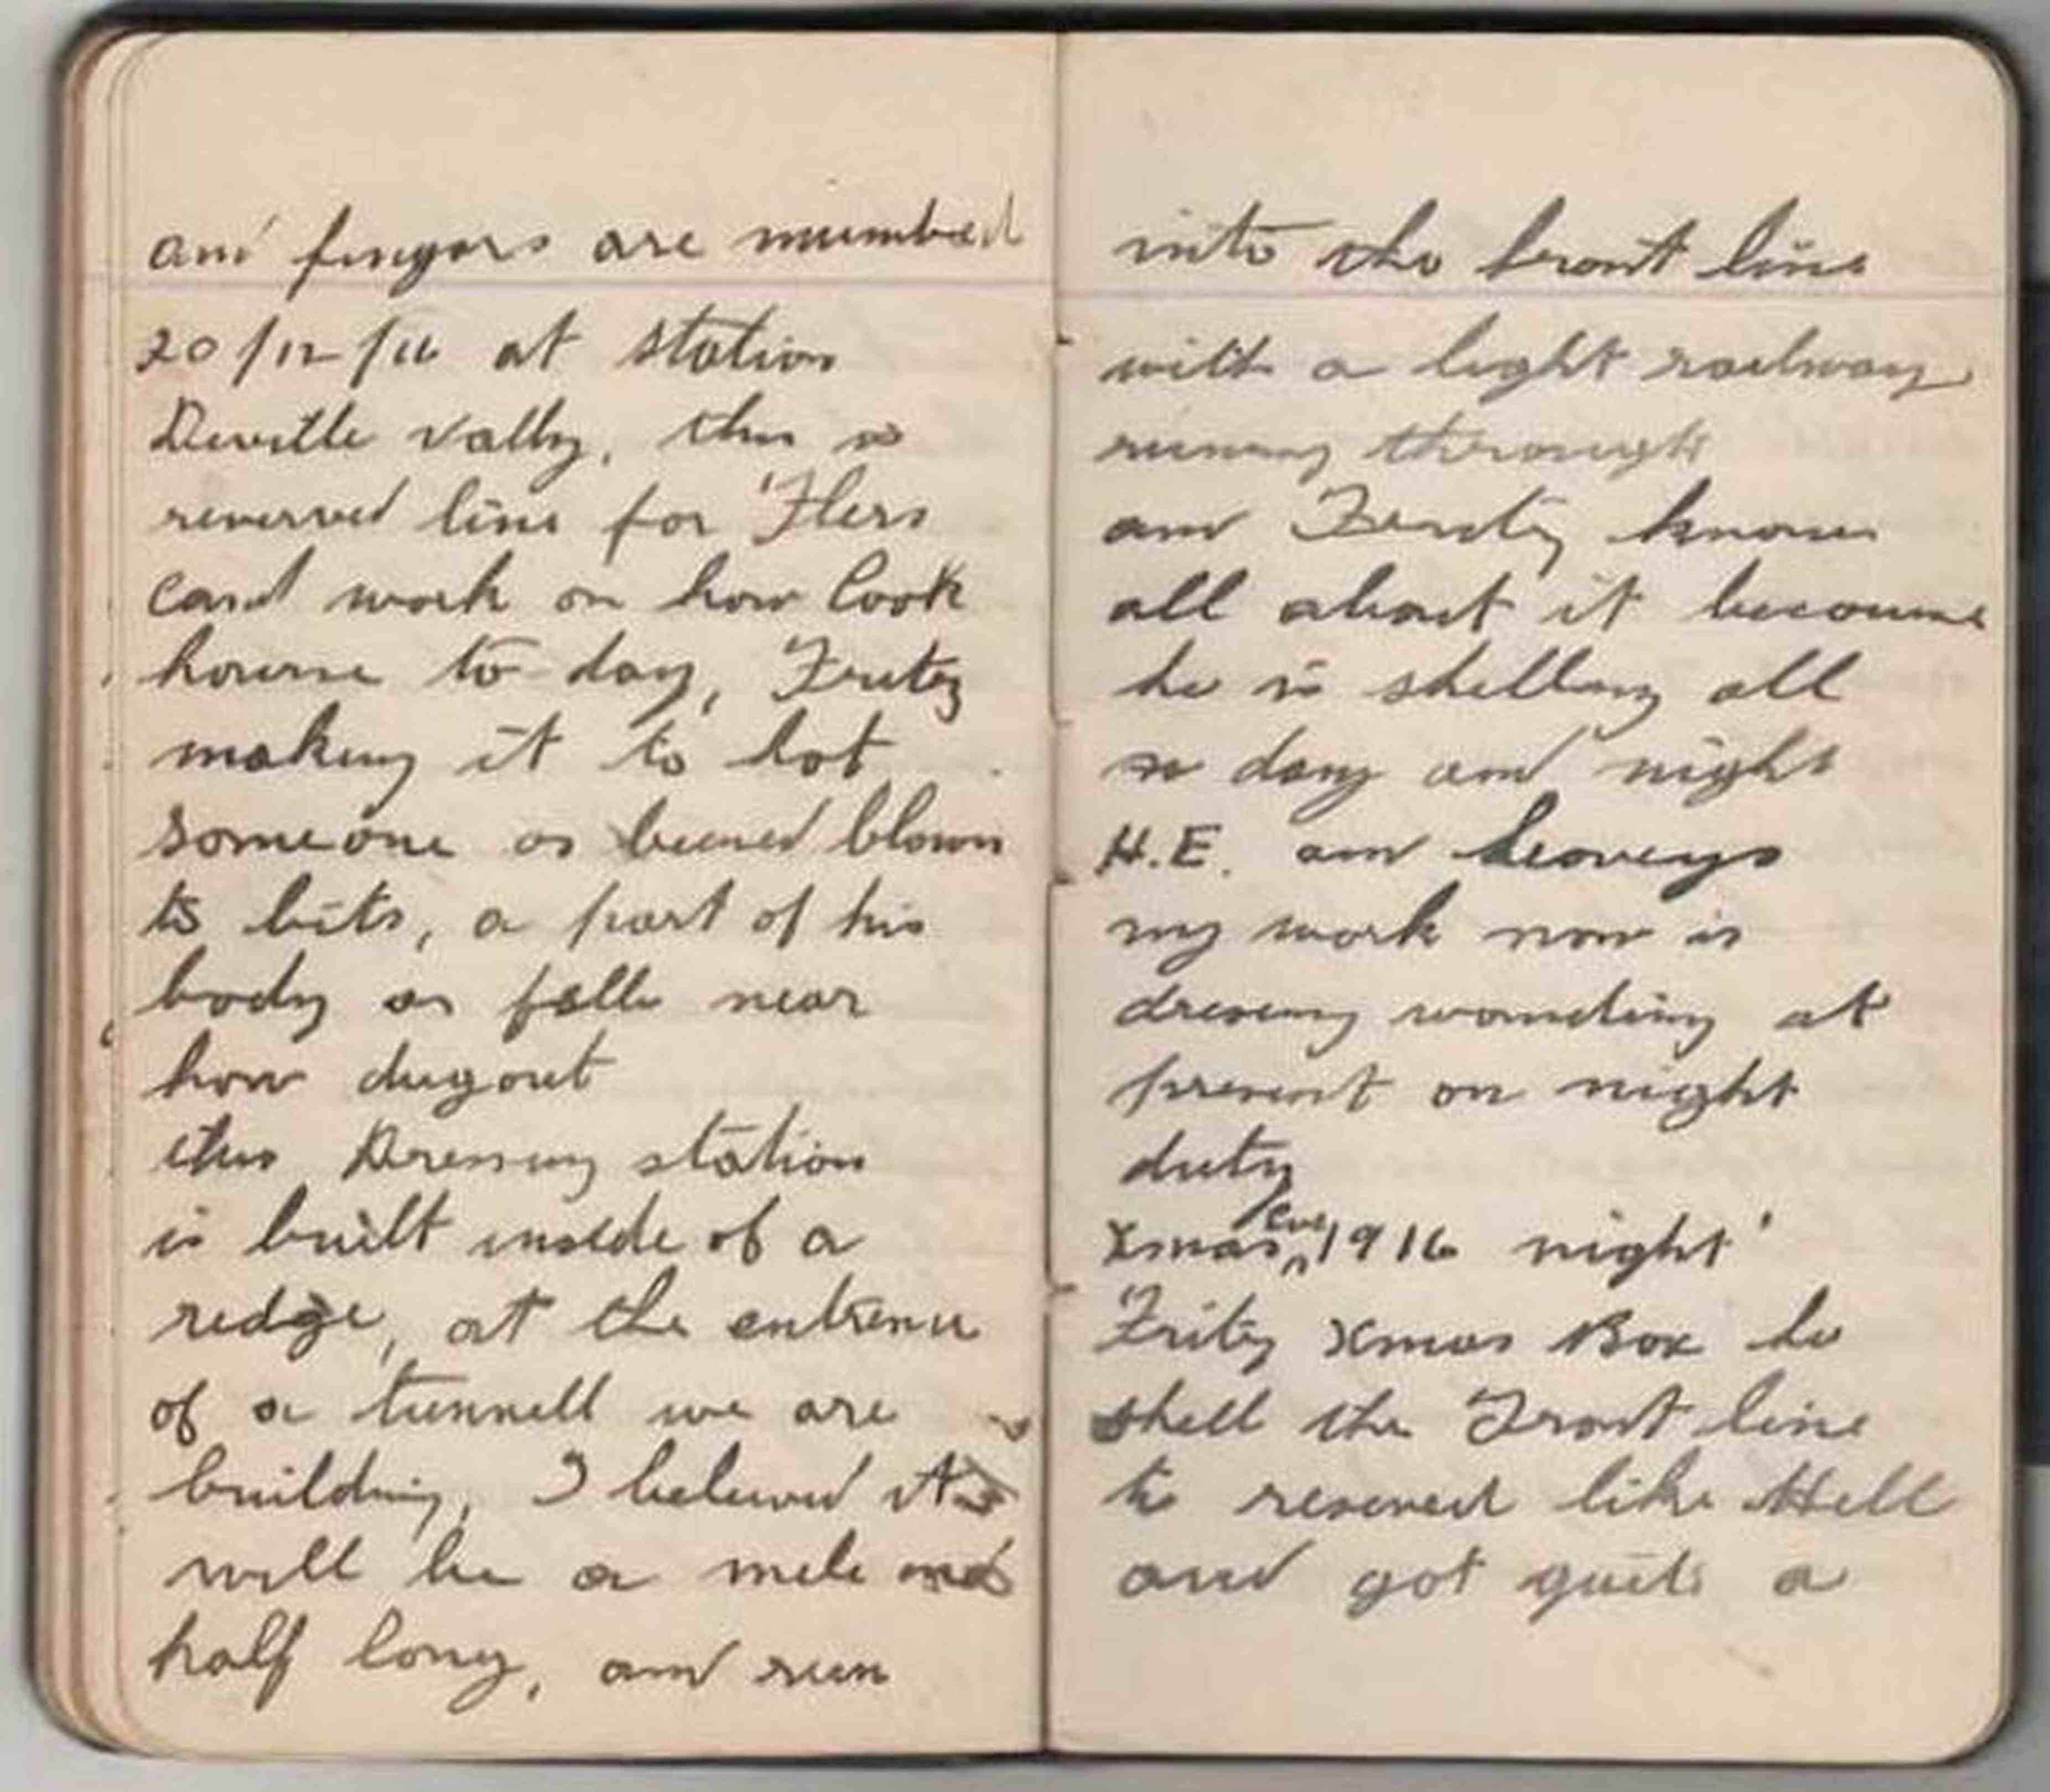 and fingers are mumbed
20/12/16 at station
Deville Vally, this is
reserved line for Flers
cand work on how Cook
house to day, Fritz
making it to hot
someone as beened blown
to bits, a part of his
body as falle near
how dugout
this Dressing station
is built inside of a
redge, at the entrence
of a tunnell we are
building, I beleived it
will be a mile and
half long, and run
into the front line
with a light railway
running through
and Fritz knows
all about it because
he is shelling all
day and night
H.E. and heaveys
my work now is
dressing wounding at
present on night
duty
Xmas eve 1916 night
Fritz Xmas Box he
shell the Front line
to reserved like Hell
and got quite a